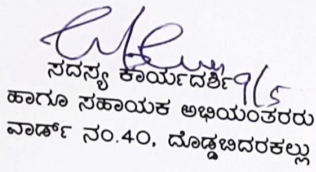 ಸದಸ್ಯ ಕಾರ್ಯದರ್ಶಿ 9/5
ಹಾಗೂ ಸಹಾಯಕ ಅಭಿಯಂತರರು
ವಾರ್ಡ್ ನಂ.40, ದೊಡ್ಡಬಿದರಕಲ್ಲು